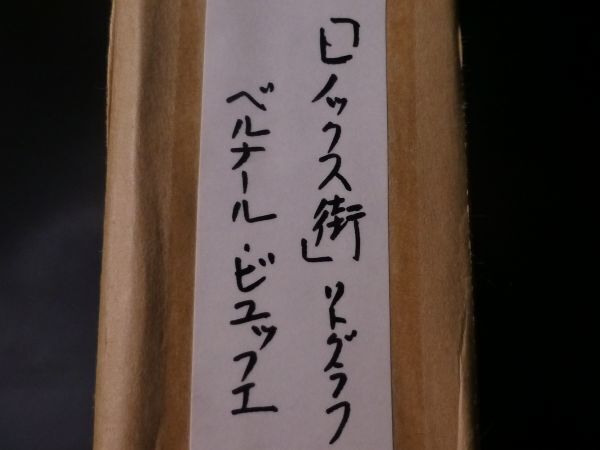 「レノックス街」リトグラフ
ベルナール・ビュッフェ